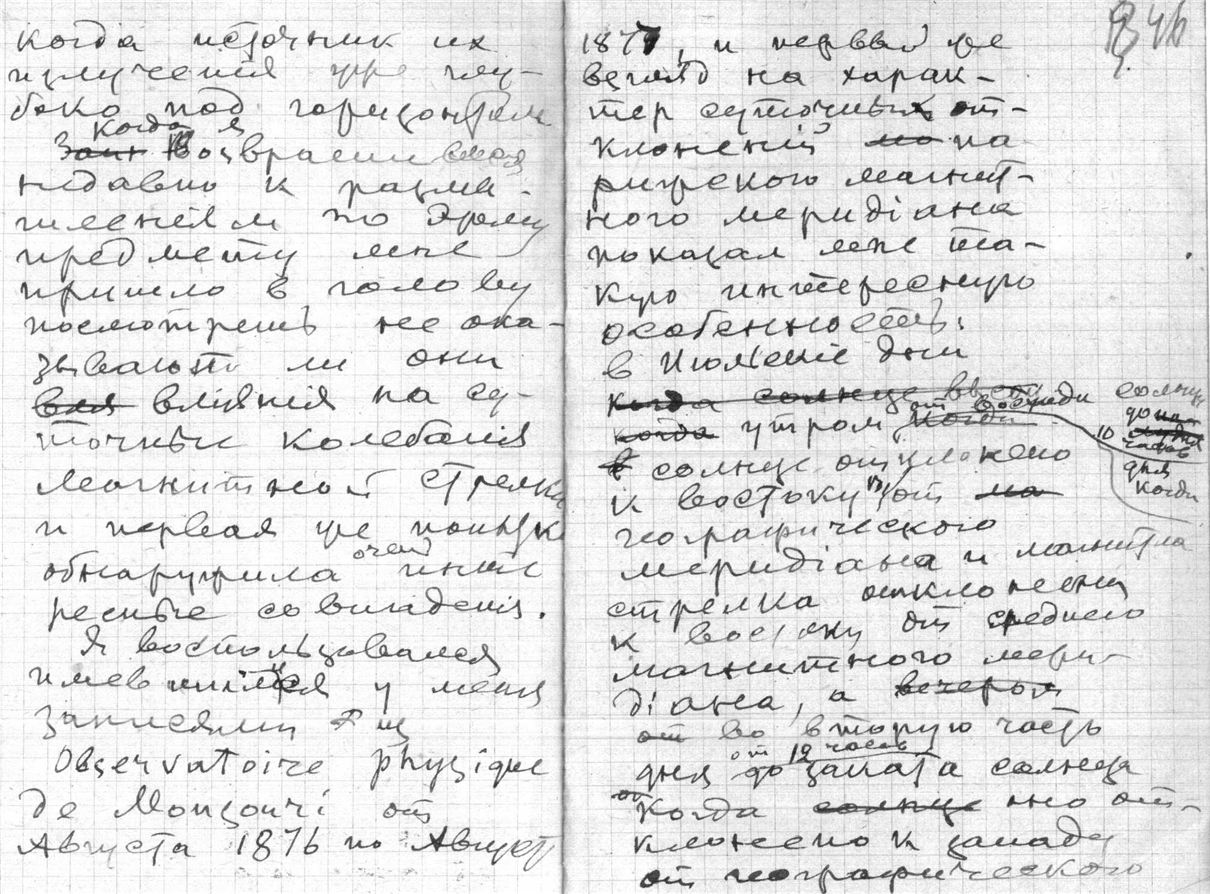 когда источник их
излученiя уже глу-
боко под горизонтом
Когда я
возвратился
недавно к размы-
шленiям по этому
предмету мне
пришло в голову
посмотреть не ока-
зывают ли они
влiянiя на су-
точные колебанiя
магнитной стрелки
и первая же попытка
очень
обнаружила инте
ресные совпаденiя.
Я воспользовался
имевшимися у меня
записями
Observatoire physique
de Monsouri от
Августа 1876 по Август
346
1877, и первый же
взгляд на харак-
тер суточных от-
клоненiй па
рижского магнит-
ного меридiана
показал мне та-
кую интересную
особенность.
в Июльскiе дни
когда солнце
когда утром, от восхода солнца
до 10 часов
дня
когда
солнце отклонено
к востоку от
географического
меридiана и магнитна
стрелка отклонена
к востоку от среднего
магнитного мери-
дiана, а вечером
от во вторую часть
от 12 часов
дня до заката солнца
когда солнце оно от-
клонено к западу
от географического